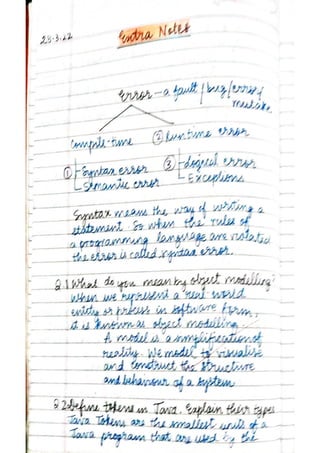 28-3-22
Extra Notes
Error - a fault / bug / error / mistake
Compile-time ② Runtime error
① Syntax error ③ Logical error
Semantic error Exceptions
Syntax means the way of writing a
statement. So when the rules of
a programming language are violated
the error is called syntax error.
Q.1 What do you mean by object modelling?
When we represent a real world
entity or process in software form,
it is known as object modelling.
A model is a simplification of
reality. We model to visualise
and construct the structure
and behaviour of a system
Q.2 Define tokens in Java. Explain their types
Java Tokens are the smallest units of a
Java program that are used by the